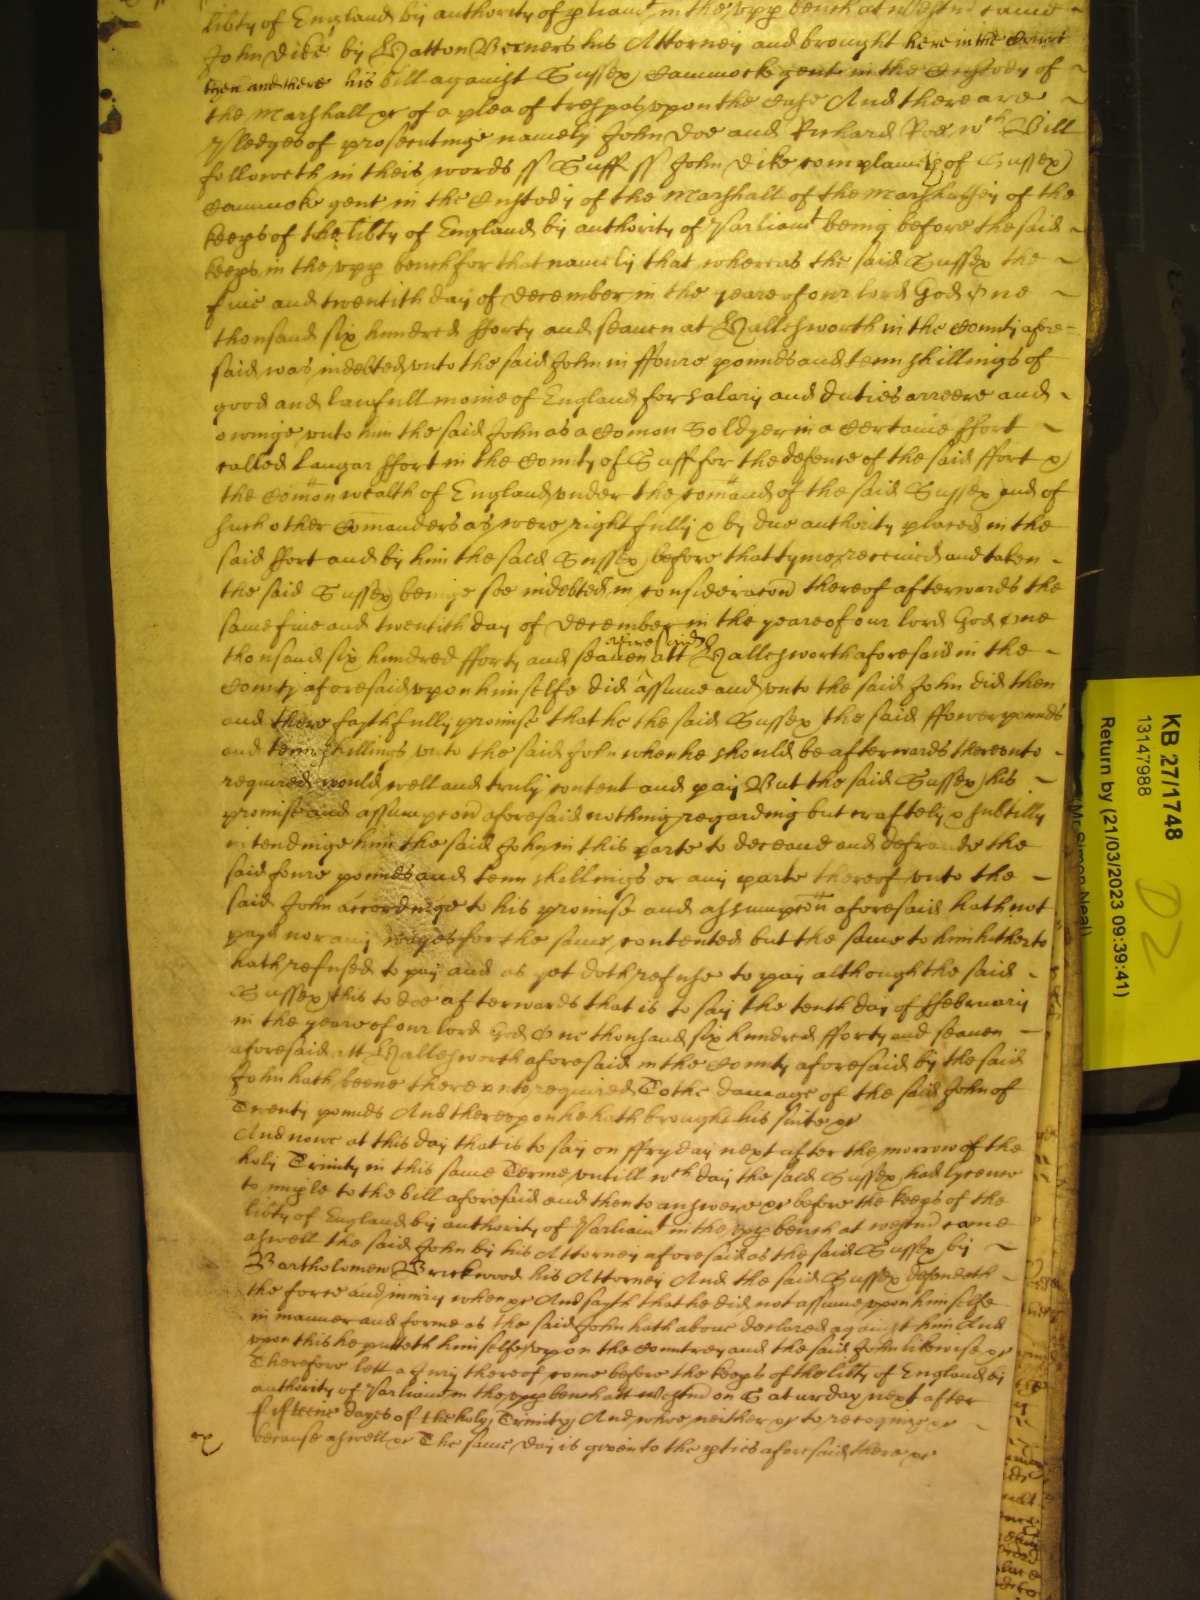 libty of England by authority of pliamt in the upp bench at Westm came
John Dike by Hatton Berners his Attorney and brought here in the Court
then and there his bill against Sussex Cammock gent in the Custody of
the Marshall &c of a plea of trespas vpon the Case And there are
Pledges of prosecutinge namely John Doe and Richard Roe wch Bill
followeth in theis words ss Suff ss John Dike complaineth of Sussex
Cammock gent in the Custody of the Marshall of the Marshalsey of the
keeps of the libty of England by authority of Parliamt being before the said
keeps in the vpp bench for that namely that whereas the said Sussex the
five and twentith day of December in the yeare of our lord God One
thousand six hundred fforty and seaven at Hallesworth in the County afore-
said was indebted vnto the said John in ffoure pounds and tenn shillings of
good and lawfull monie of England for salary and duties arreere and
owinge vnto him the said John as a Comon Soldyer in a Certaine ffort
called Langar ffort in the County of Suff for the defence of the said ffort &
the Comon wealth of England vnder the comand of the said Sussex and of
such other Comanders as were rightfully & by due authority placed in the
said ffort and by him the said Sussex before that tyme received and taken
the said Sussex beinge soe indebted in consideracon thereof afterwards the
same five and twentith day of December in the yeare of our lord God One
thousand six hundred fforty and seaven aforesaid att Hallesworth aforesaid in the
County aforesaid vpon himselfe did assume and vnto the said John did then
and there faythfully promise that he the said Sussex the said ffower pounds
and tenn shillings vnto the said John when he should be afterwards therevnto
required would well and truly content and pay But the said Sussex his
promise and assumpcon aforesaid nothing regarding but craftely & subtilly
intendinge him the said John in this parte to deceave and defraude the
said foure pounds and tenn shillings or any parte thereof vnto the
said John accordinge to his promise and assumpcon aforesaid hath not
payd nor any wayes for the same contented but the same to him hitherto
hath refused to pay and as yet doth refuse to pay although the said
Sussex this to doe afterwards that is to say the tenth day of ffebruary
in the yeare of our lord God One thousand six hundred fforty and seaven
aforesaid att Hallesworth aforesaid in the County aforesaid by the said
John hath beene therevnto required To the damage of the said John of
Twenty pounds And therevpon he hath brought his suite &c
And nowe at this day that is to say on ffryday next after the morrow of the
holy Trinity in this same Terme vntill wch day the said Sussex had lycence
to imple to the bill aforesaid and then to answere &c before the keeps of the
libty of England by authority of Parliamt in the vpp bench at westm came
aswell the said John by his Attorney aforesaid as the said Sussex by
Bartholomew Brickwood his Attorney And the said Sussex defendeth
the force and iniury when &c And sayth that he did not assume vpon himselfe
in manner and forme as the said John hath above declared against him And
vpon this he putteth himselfe vpon the Countrey and the said John likewise &c
Therefore lett a Jury thereof come before the keeps of the libty of England by
authority of Parliamt in the vpp bench att Westm on Saturday next after
fifteene dayes of the holy Trinity And whoe neither &c to recognize &c
because aswell &c The same day is given to the pties aforesaid there &c
ex
KB 27/1748
13147988
Return by (21/03/2023 09:39:41)
Mr Simon Neal)
D2